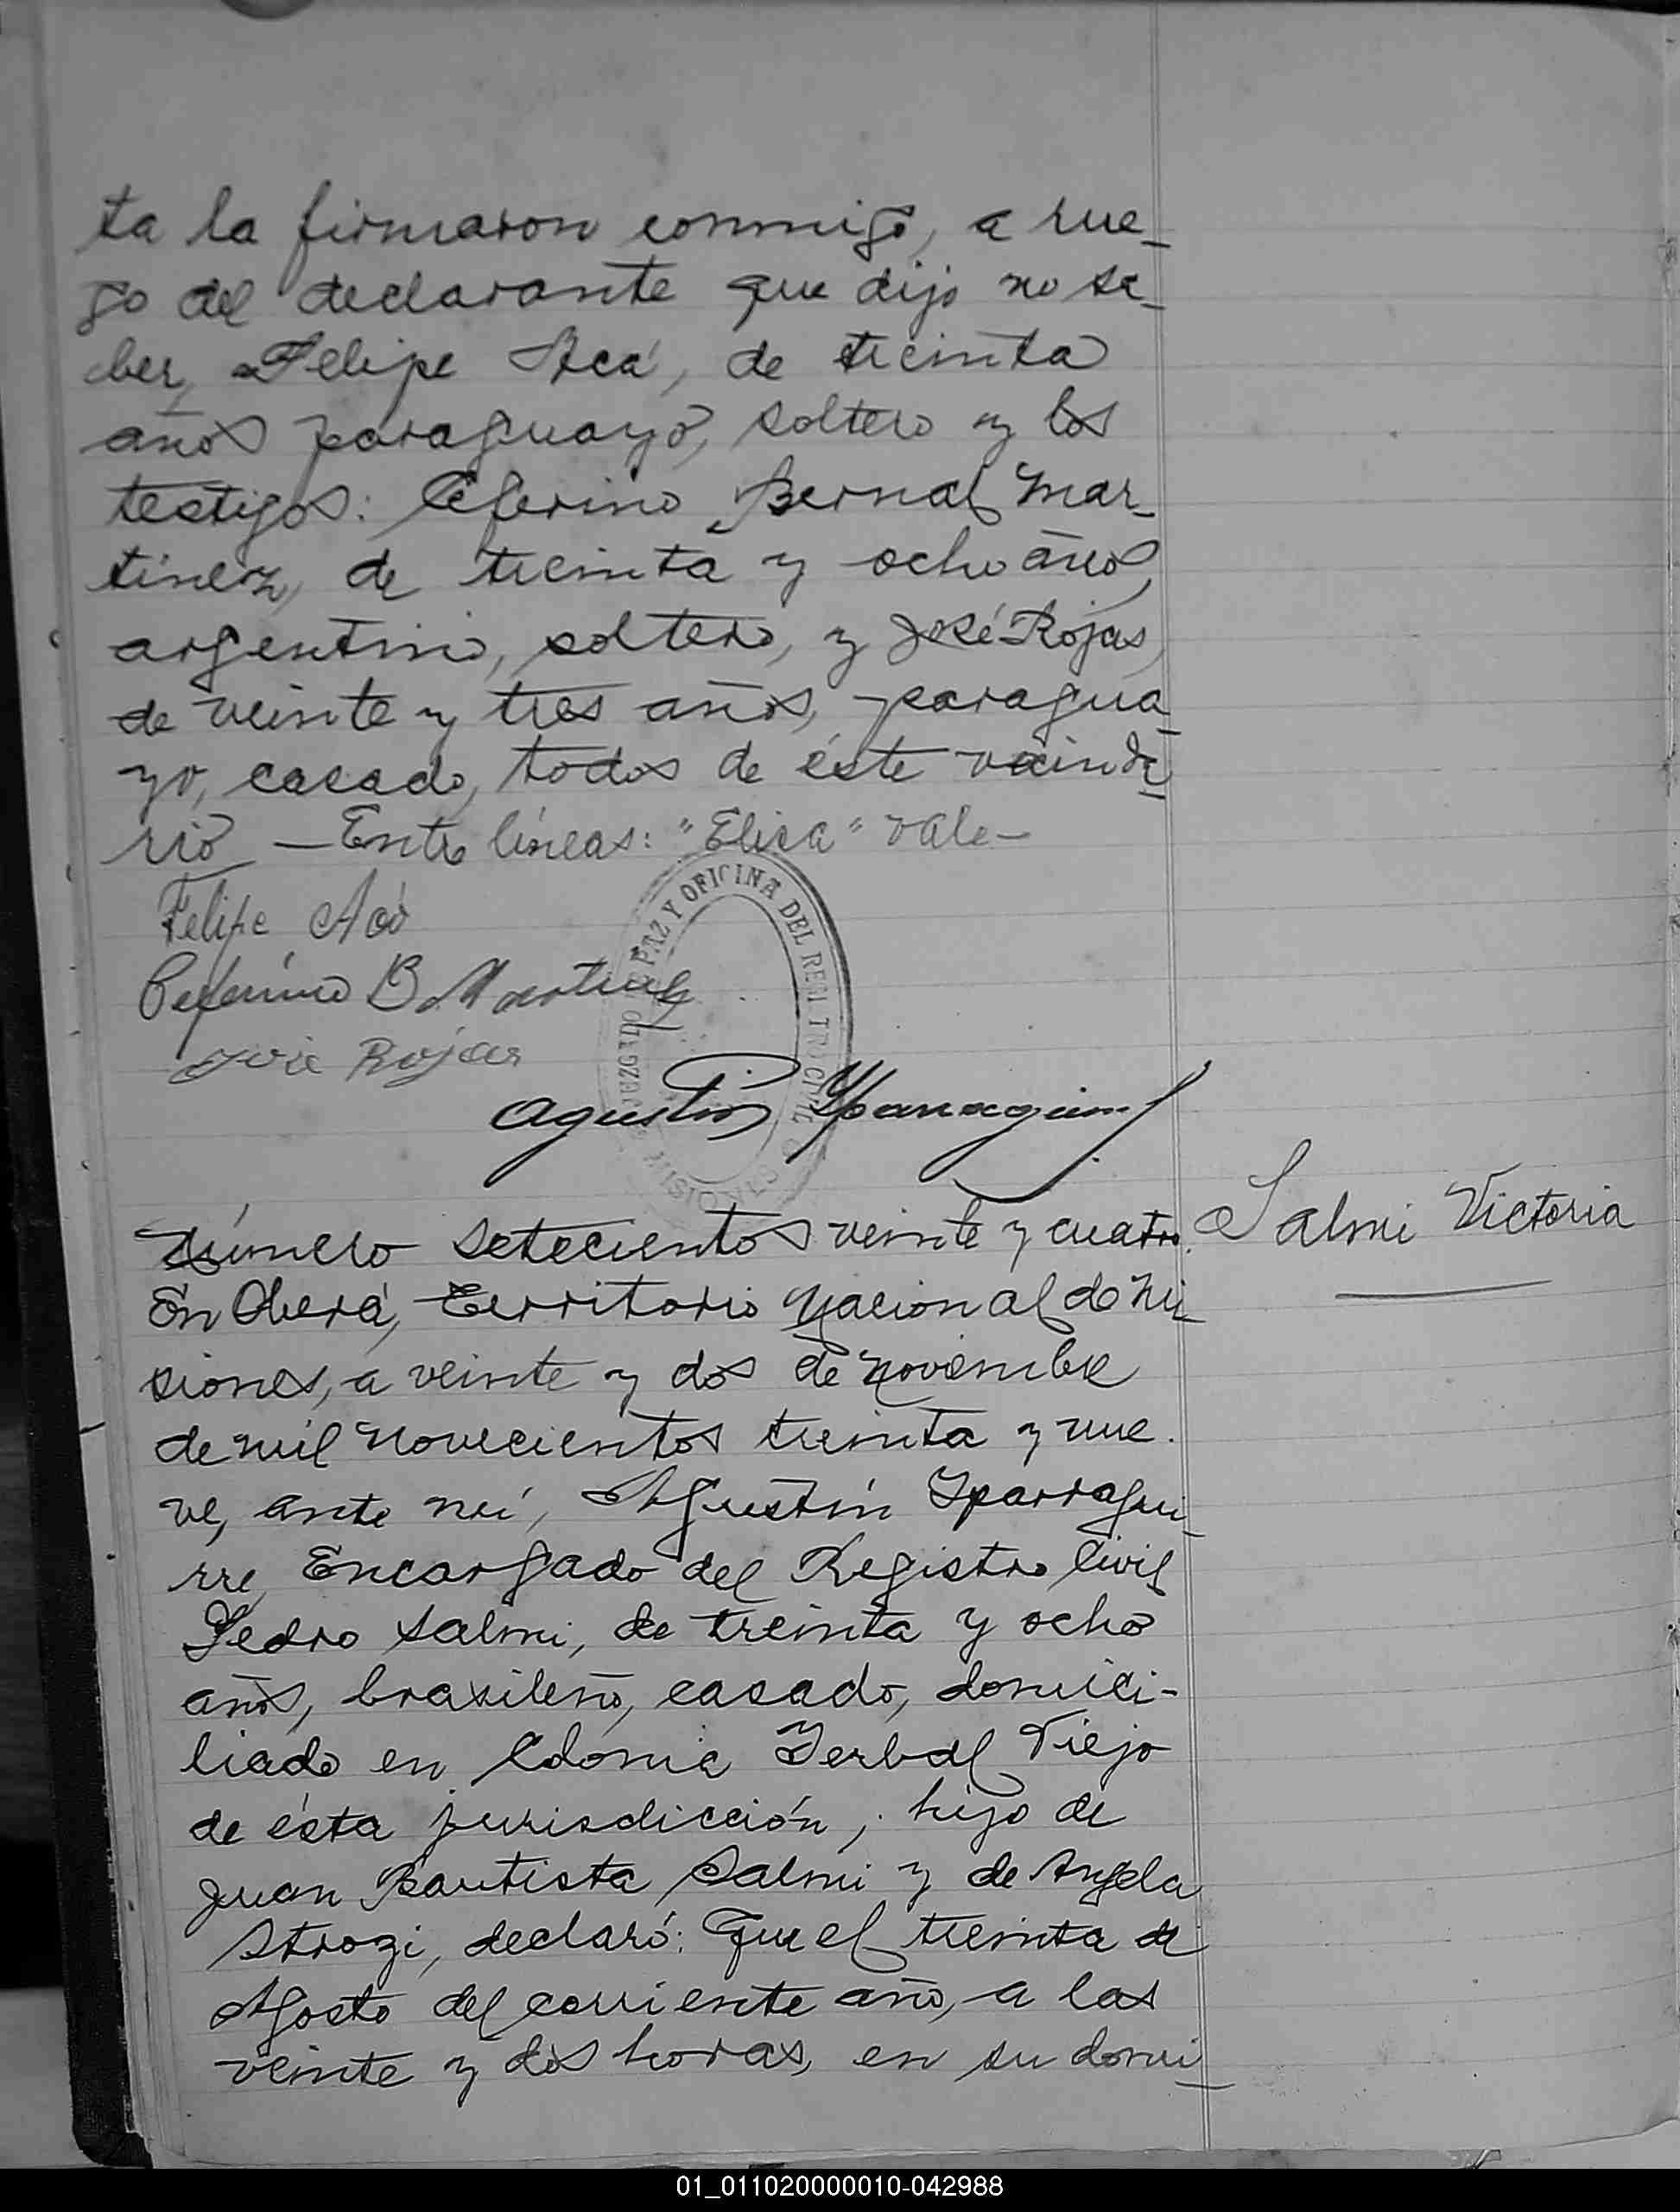 ta la firmaron conmigo, a rue_
go del declarante que dijo no sa_
ber, Felipe Acá, de treinta
años paraguayo, soltero y los
testigos: Ceferino Bernal Mar_
tinez, de treinta y ocho años,
argentino, soltero, y José Rojas,
de veinte y tres años, paragua_
yo, casado, todos de éste vecinda_
rio — Entre líneas: "Elisa" vale —
Felipe
Ceferino B Martinez
José Rojas
JUZGADO DE PAZ Y OFICINA DEL REGISTRO CIVIL
MISIONES
Agustin Yparraguirre
Número setecientos veinte y cuatro.
Salmi Victoria
En Oberá, Territorio Nacional de Mi_
siones, a veinte y dos de Noviembre
de mil novecientos treinta y nue.
ve, ante mí, Agustín Yparragui_
rre, Encargado del Registro Civil
Pedro Salmi, de treinta y ocho
años, brasileño, casado, domici-
liado en Colonia Yerbal Viejo
de ésta jurisdicción, hijo de
Juan Bautista Salmi y de Angela
Strozi, declaró: Que el treinta de
Agosto del corriente año, a las
veinte y dos horas, en su domi_
01_011020000010-042988